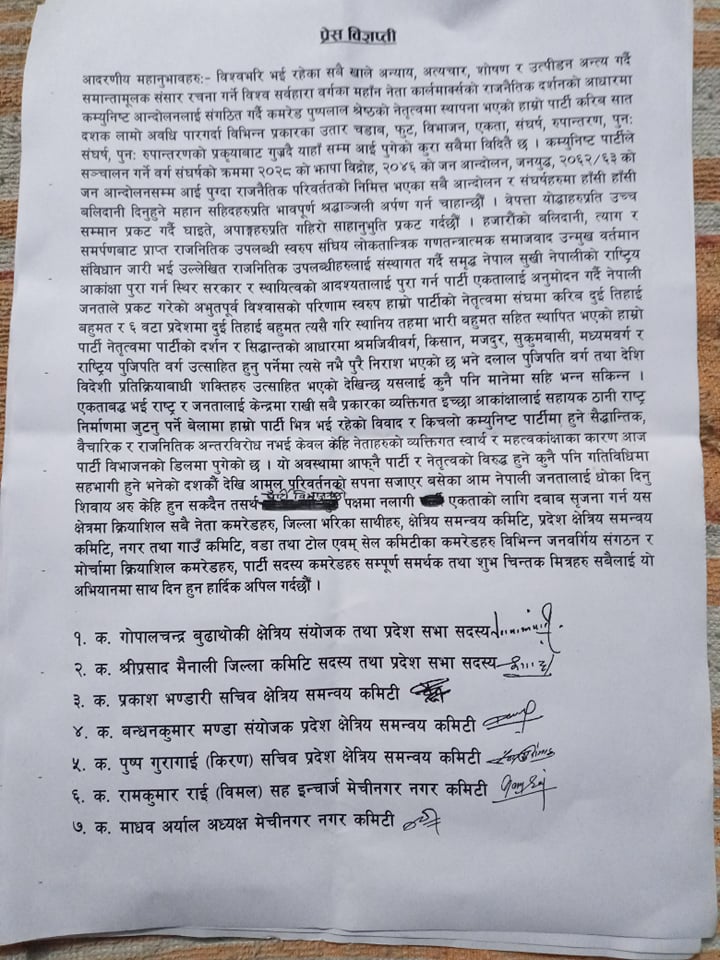 प्रेस विज्ञप्ती
आदरणीय महानुभावहरु:- विश्वभरि भई रहेका सबै खाले अन्याय, अत्यचार, शोषण र उत्पीडन अन्त्य गर्दै
समान्तामूलक संसार रचना गर्ने विश्व सर्वहारा वर्गका महाँन नेता कार्लमार्क्सको राजनैतिक दर्शनको आधारमा
कम्युनिष्ट आन्दोलनलाई संगठित गर्दै कमरेड पुष्पलाल श्रेष्ठको नेतृत्वमा स्थापना भएको हाम्रो पार्टी करिब सात
दशक लामो अवधि पारगर्दा विभिन्न प्रकारका उतार चडाब, फुट, विभाजन, एकता, संघर्ष, रुपान्तरण, पुन:
संघर्ष, पुन: रुपान्तरणको प्रकृयाबाट गुज्रदै यहाँ सम्म आई पुगेको कुरा सबैमा विदितै छ । कम्युनिष्ट पार्टीले
सञ्चालन गर्ने वर्ग संघर्षको क्रममा २०२८ को झापा विद्रोह, २०४६ को जन आन्दोलन, जनयुद्ध, २०६२/६३ को
जन आन्दोलनसम्म आई पुग्दा राजनैतिक परिवर्ततको निमित्त भएका सबै आन्दोलन र संघर्षहरुमा हाँसी हाँसी
बलिदानी दिनुहुने महान सहिदहरुप्रति भावपूर्ण श्रद्धाञ्जली अर्पण गर्न चाहान्छौँ । वेपत्ता योद्धाहरुप्रति उच्च
सम्मान प्रकट गर्दै घाइते, अपाङ्गहरुप्रति गहिरो साहानुभुति प्रकट गर्दछौँ । हजारौंको बलिदानी, त्याग र
समर्पणबाट प्राप्त राजनितिक उपलब्धी स्वरुप संघिय लोकतान्त्रिक गणतन्त्रात्मक समाजवाद उन्मुख वर्तमान
संविधान जारी भई उल्लेखित राजनितिक उपलब्धीहरलाई संस्थागत गर्दै समृद्ध नेपाल सुखी नेपालीको राष्ट्रिय
आकांक्षा पुरा गर्न स्थिर सरकार र स्थायित्वको आदश्यतालाई पुरा गर्न पार्टी एकतालाई अनुमोदन गर्दै नेपाली
जनताले प्रकट गरेको अभुतपूर्व विश्वासको परिणाम स्वरुप हाम्रो पार्टीको नेतृत्वमा संघमा करिब दुई तिहाई
बहुमत र ६ वटा प्रदेशमा दुई तिहाई बहुमत त्यसै गरि स्थानिय तहमा भारी बहुमत सहित स्थापित भएको हाम्रो
पार्टी नेतृत्वमा पार्टीको दर्शन र सिद्धान्तको आधारमा श्रमजिवीवर्ग, किसान, मजदुर, सुकुमबासी, मध्यमबर्ग र
राष्ट्रिय पुजिपति वर्ग उत्साहित हुनु पर्नेमा त्यसे नभै पुरै निराश भएको छ भने दलाल पुजिपति वर्ग तथा देशि
विदेशी प्रतिक्रियाबाधी शक्तिहरु उत्साहित भएको देखिन्छ यसलाई कुनै पनि मानेमा सहि भन्न सकिन्न ।
एकताबद्ध भई राष्ट्र र जनतालाई केन्द्रमा राखी सबै प्रकारका व्यक्तिगत इच्छा आकांक्षालाई सहायक ठानी राष्ट्र
निर्माणमा जुटनु पर्ने बेलामा हाम्रो पार्टी भित्र भई रहेको विवाद र किचलो कम्युनिष्ट पार्टीमा हुने सैद्धान्तिक,
वैचारिक र राजनितिक अन्तरविरोध नभई केवल केहि नेताहरुको व्यक्तिगत स्वार्थ र महत्वकांक्षाका कारण आज
पार्टी विभाजनको डिलमा पुगेको छ । यो अवस्थामा आफ्नै पार्टी र नेतृत्वको विरुद्ध हुने कुनै पनि गतिविधिमा
सहभागी हुने भनेको दशकौं देखि आमुल परिवर्तनको सपना सजाएर बसेका आम नेपाली जनतालाई धोका दिनु
पार्टी विभाजनको
शिवाय अरु केहि हुन सक्दैन तसर्थ पक्षमा नलागी एकताको लागि दवाव सृजना गर्न यस
क्षेत्रमा क्रियाशिल सबै नेता कमरेडहरु, जिल्ला भरिका साथीहरु, क्षेत्रिय समन्वय कमिटि, प्रदेश क्षेत्रिय समन्वय
कमिटि, नगर तथा गाउँ कमिटि, वडा तथा टोल एवम् सेल कमिटीका कमरेडहरु विभिन्न जनवर्गिय संगठन र
मोर्चामा क्रियाशिल कमरेडहरु, पार्टी सदस्य कमरेडहरु सम्पूर्ण समर्थक तथा शुभ चिन्तक मित्रहरु सबैलाई यो
अभियानमा साथ दिन हुन हार्दिक अपिल गर्दछौँ ।
१. क. गोपालचन्द्र बुढाथोकी क्षेत्रिय संयोजक तथा प्रदेश सभा सदस्य
२. क. श्रीप्रसाद मैनाली जिल्ला कमिटि सदस्य तथा प्रदेश सभा सदस्य
३. क. प्रकाश भण्डारी सचिव क्षेत्रिय समन्वय कमिटी
४. क. बन्धनकुमार मण्डा संयोजक प्रदेश क्षेत्रिय समन्वय कमिटी
५. क. पुष्प गुरागाई (किरण) सचिव प्रदेश क्षेत्रिय समन्वय कमिटी
६. क. रामकुमार राई (विमल) सह इन्चार्ज मेचीनगर नगर कमिटी
७. क. माधव अर्याल अध्यक्ष मेचीनगर नगर कमिटी